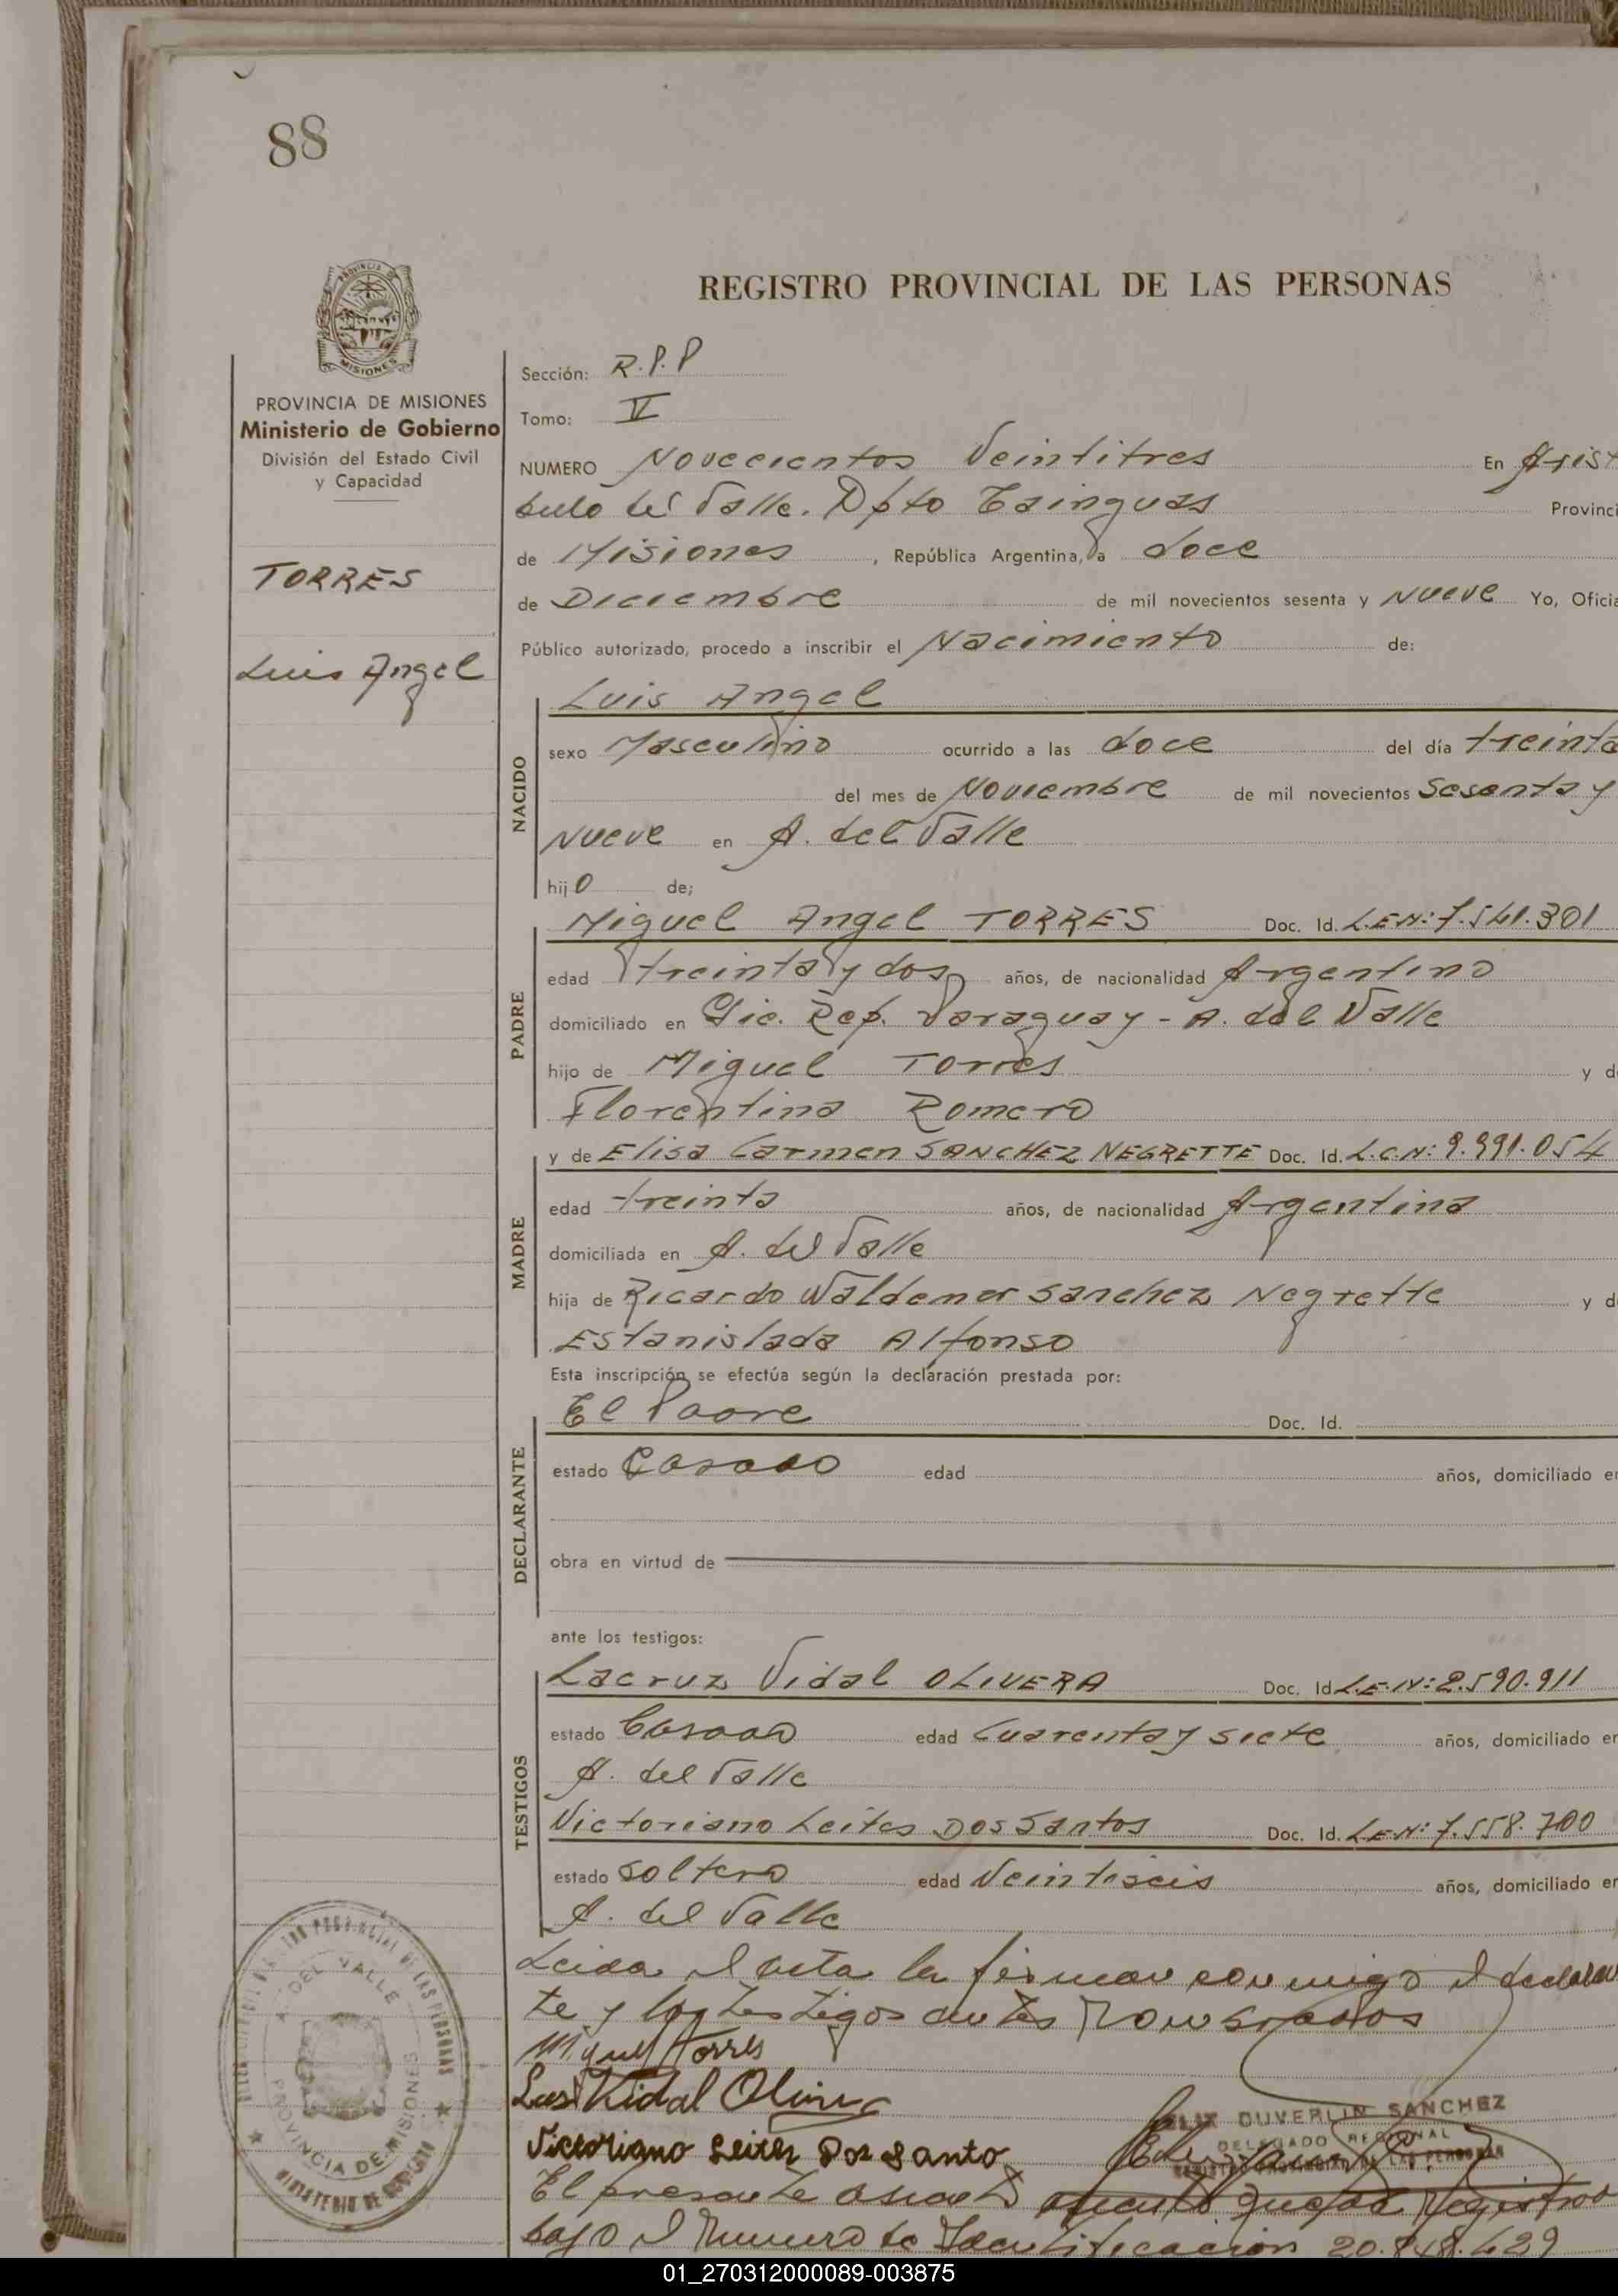 88
REGISTRO PROVINCIAL DE LAS PERSONAS
PROVINCIA DE MISIONES
Ministerio de Gobierno
División del Estado Civil
y Capacidad
TORRES
Luis Angel
Sección: R.P.P
Tomo: V
NUMERO Novecientos Veintitres En Arist
bulo del Valle. Dpto Cainguas Provinci
de Misiones, República Argentina, a doce
de Diciembre de mil novecientos sesenta y Nueve Yo, Oficia
Público autorizado, procedo a inscribir el Nacimiento de:
NACIDO
Luis Angel
sexo Masculino ocurrido a las doce del día treinta
del mes de Noviembre de mil novecientos Sesenta y
Nueve en A. del Valle
hijo de;
PADRE
Miguel Angel TORRES Doc. Id. L.E.N: 7.541.301
edad treinta y dos años, de nacionalidad Argentino
domiciliado en Pic. Rep. Paraguay - A. del Valle
hijo de Miguel Torres y d
Florentina Romero
MADRE
y de Elisa Carmen SANCHEZ NEGRETTE Doc. Id. L.C.N: 9.991.054
edad treinta años, de nacionalidad Argentina
domiciliada en A. del Valle
hija de Ricardo Waldemar Sanchez Negrette y d
Estanislada Alfonso
Esta inscripción se efectúa según la declaración prestada por:
DECLARANTE
El Padre Doc. Id.
estado Casado edad años, domiciliado en
obra en virtud de
ante los testigos:
TESTIGOS
Lacruz Vidal OLIVERA Doc. Id L.E.N: 2.590.911
estado Casado edad Cuarenta y siete años, domiciliado en
A. del Valle
Victoriano Leites Dos Santos Doc. Id. L.E.N: 7.558.700
estado soltero edad Veintiseis años, domiciliado en
A. del Valle
Leida el acta la firman conmigo el declaran
te y los testigos antes
Miguel Torres
Vidal Olivera
Victoriano Leites Dos Santo
FELIX DUVERLIN SANCHEZ
DELEGADO REGIONAL
REGISTRO PROVINCIAL DE LAS PERSONAS
El presente asiento asiento queda Registrado
bajo el Numero de Identificacion 20.848.429
A. DEL VALLE
PROVINCIA DE MISIONES
MINISTERIO DE GOBIERNO
01_270312000089-003875